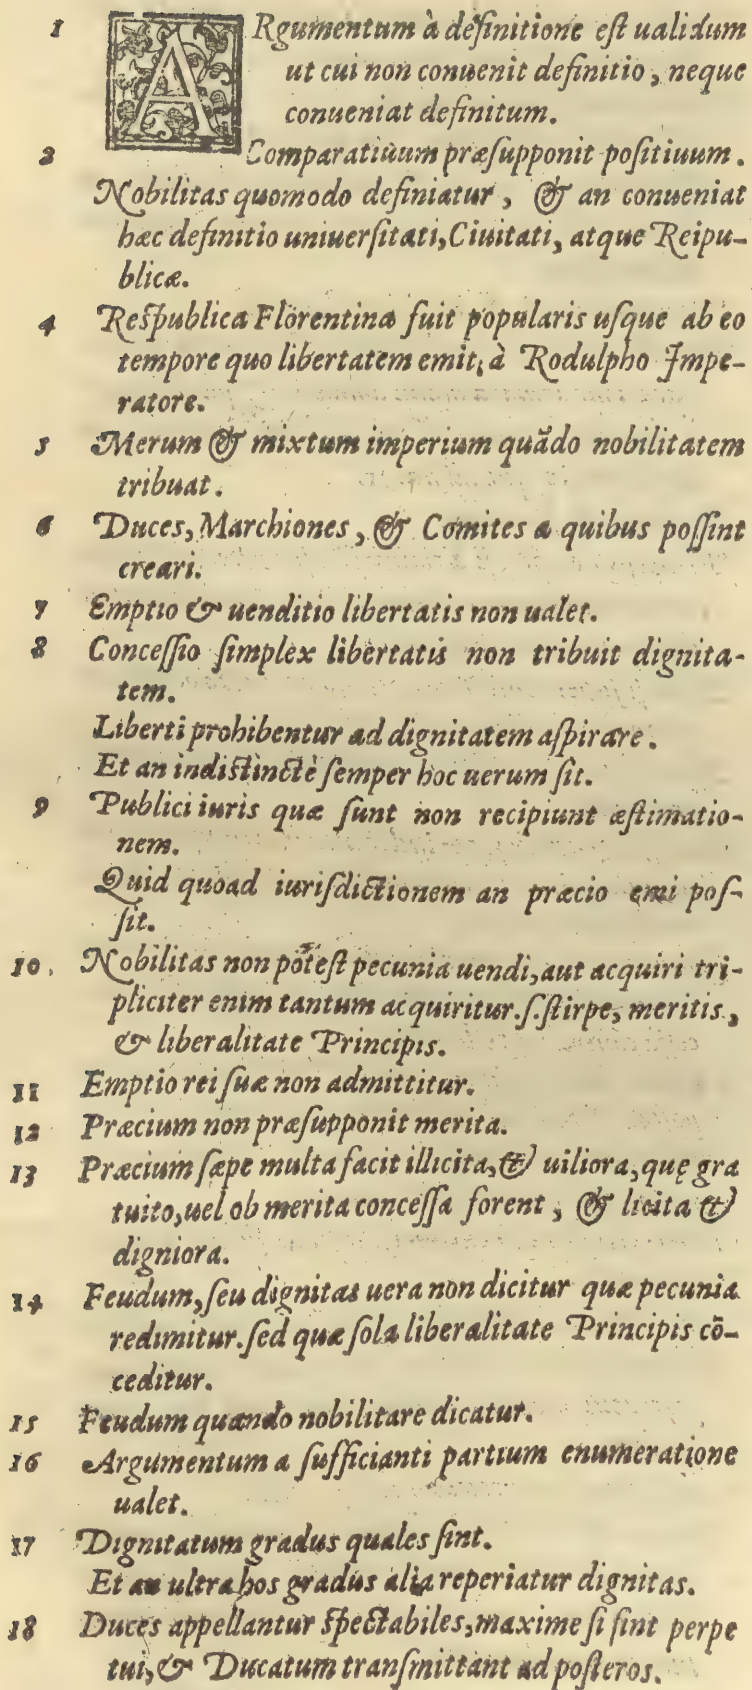 1 ARgumentum à definitione est ualidum
ut cui non conuenit definitio, neque
conueniat definitum.
2 Comparatiuum præsupponit positiuum.
Nobilitas quomodo definiatur, & an conueniat
hæc definitio uniuersitati, Ciuitati, atque Reipu-
blicæ.
4 Respublica Florentina fuit popularis usque ab eo
tempore quo libertatem emit, à Rodulpho Impe-
ratore.
5 Merum & mixtum imperium quādo nobilitatem
tribuat.
6 Duces, Marchiones, & Comites a quibus possint
creari.
7 Emptio & uenditio libertatis non ualet.
8 Concessio simplex libertatis non tribuit dignita-
tem.
Liberti prohibentur ad dignitatem aspirare.
Et an indistinctè semper hoc uerum sit.
9 Publici iuris quæ sunt non recipiunt æstimatio-
nem.
Quid quoad iurisdictionem an præcio emi pos-
sit.
10. Nobilitas non potest pecunia uendi, aut acquiri tri-
pliciter enim tantum acquiritur .s. stirpe, meritis,
& liberalitate Principis.
11 Emptio rei suæ non admittitur.
12 Præcium non præsupponit merita.
13 Præcium sæpe multa facit illicita, & uiliora, quę gra
tuito, uel ob merita concessa forent, & licita &
digniora.
14 Feudum, seu dignitas uera non dicitur quæ pecunia
redimitur. sed quæ sola liberalitate Principis cō-
ceditur.
15 Feudum quando nobilitare dicatur.
16 Argumentum a sufficianti partium enumeratione
ualet.
17 Dignitatum gradus quales sint.
Et an ultra hos gradus alia reperiatur dignitas.
18 Duces appellantur spectabiles, maxime si sint perpe
tui, & Ducatum transmittant ad posteros.